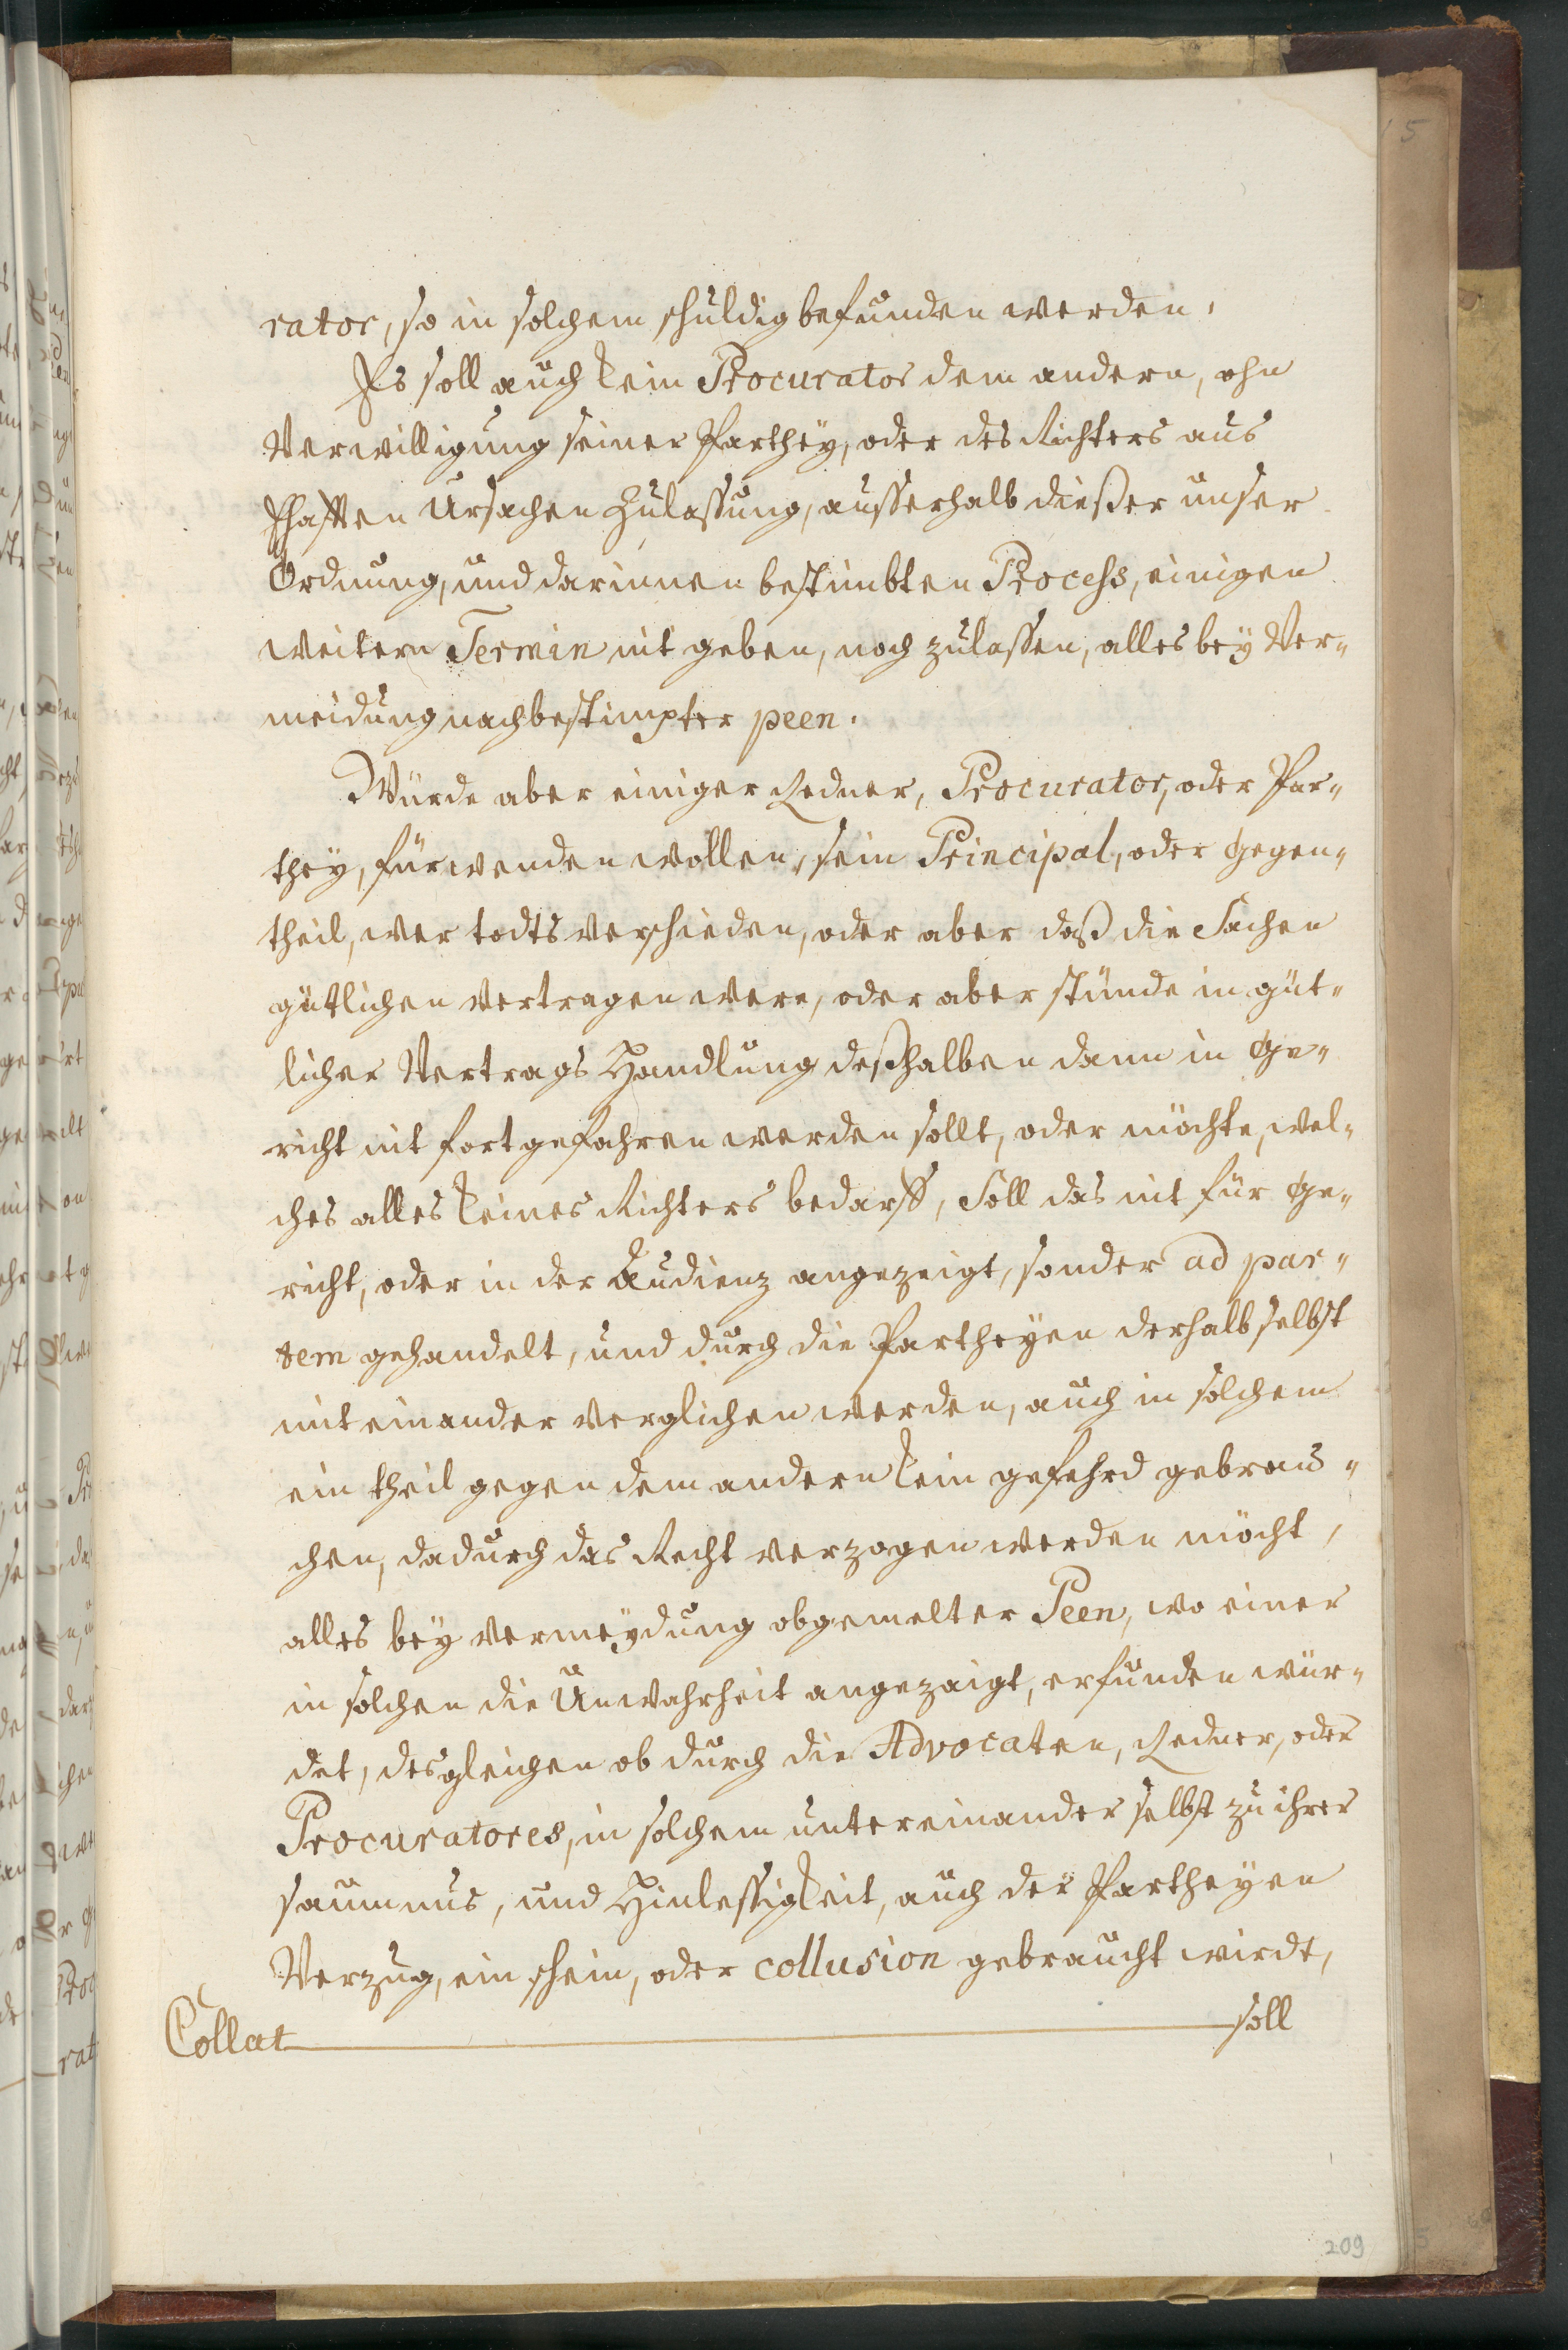 rator, so in solchem schuldig befunden werden.
Es soll auch kein Procurator dem andern, ohn
Verwilligung seiner Parthey, oder des Richters aus
Ehafften Ursachen Zulassung, ausserhalb dießer unser
Ordnung, und darinnen bestimbten Process, einigen
weitern Termin nit geben, noch zulassen, alles bey Ver„
meidung nachbestimpter peen.
Würde aber einiger Redner, Procurator, oder Par„
they, fürwenden wollen, sein Principal, oder Gegen„
theil, wer todts verschieden, oder aber daß die Sachen
gütlichen vertragen were, oder aber stünde in güt„
licher Vertrags Handlung deßhalben dann in Ge„
richt nit fortgefahren werden sollt, oder möchte, wel„
ches alles keines Richters bedarff, Soll das nit für Ge„
richt, oder in der Audienz angezeigt, sonder ad par„
tem gehandelt, und durch die Partheyen derhalb selbst
mit einander verglichen werden, auch in solchem
ein theil gegen dem andern kein gefehrd gebrau„
chen, dadurch das Recht verzogen werden möcht,
alles bey vermeydung obgemelter Peen, wo einer
in solchen die Unwahrheit angezaigt, erfunden wür„
det, desgleichen ob durch die Advocaten, Redner, oder
Procuratores, in solchem untereinander selbst zu ihrer
saumnus, und Hinlessigkeit, auch der Partheyen
Verzug, ein schein, oder collusion gebraucht wirdt,
Collat soll
209